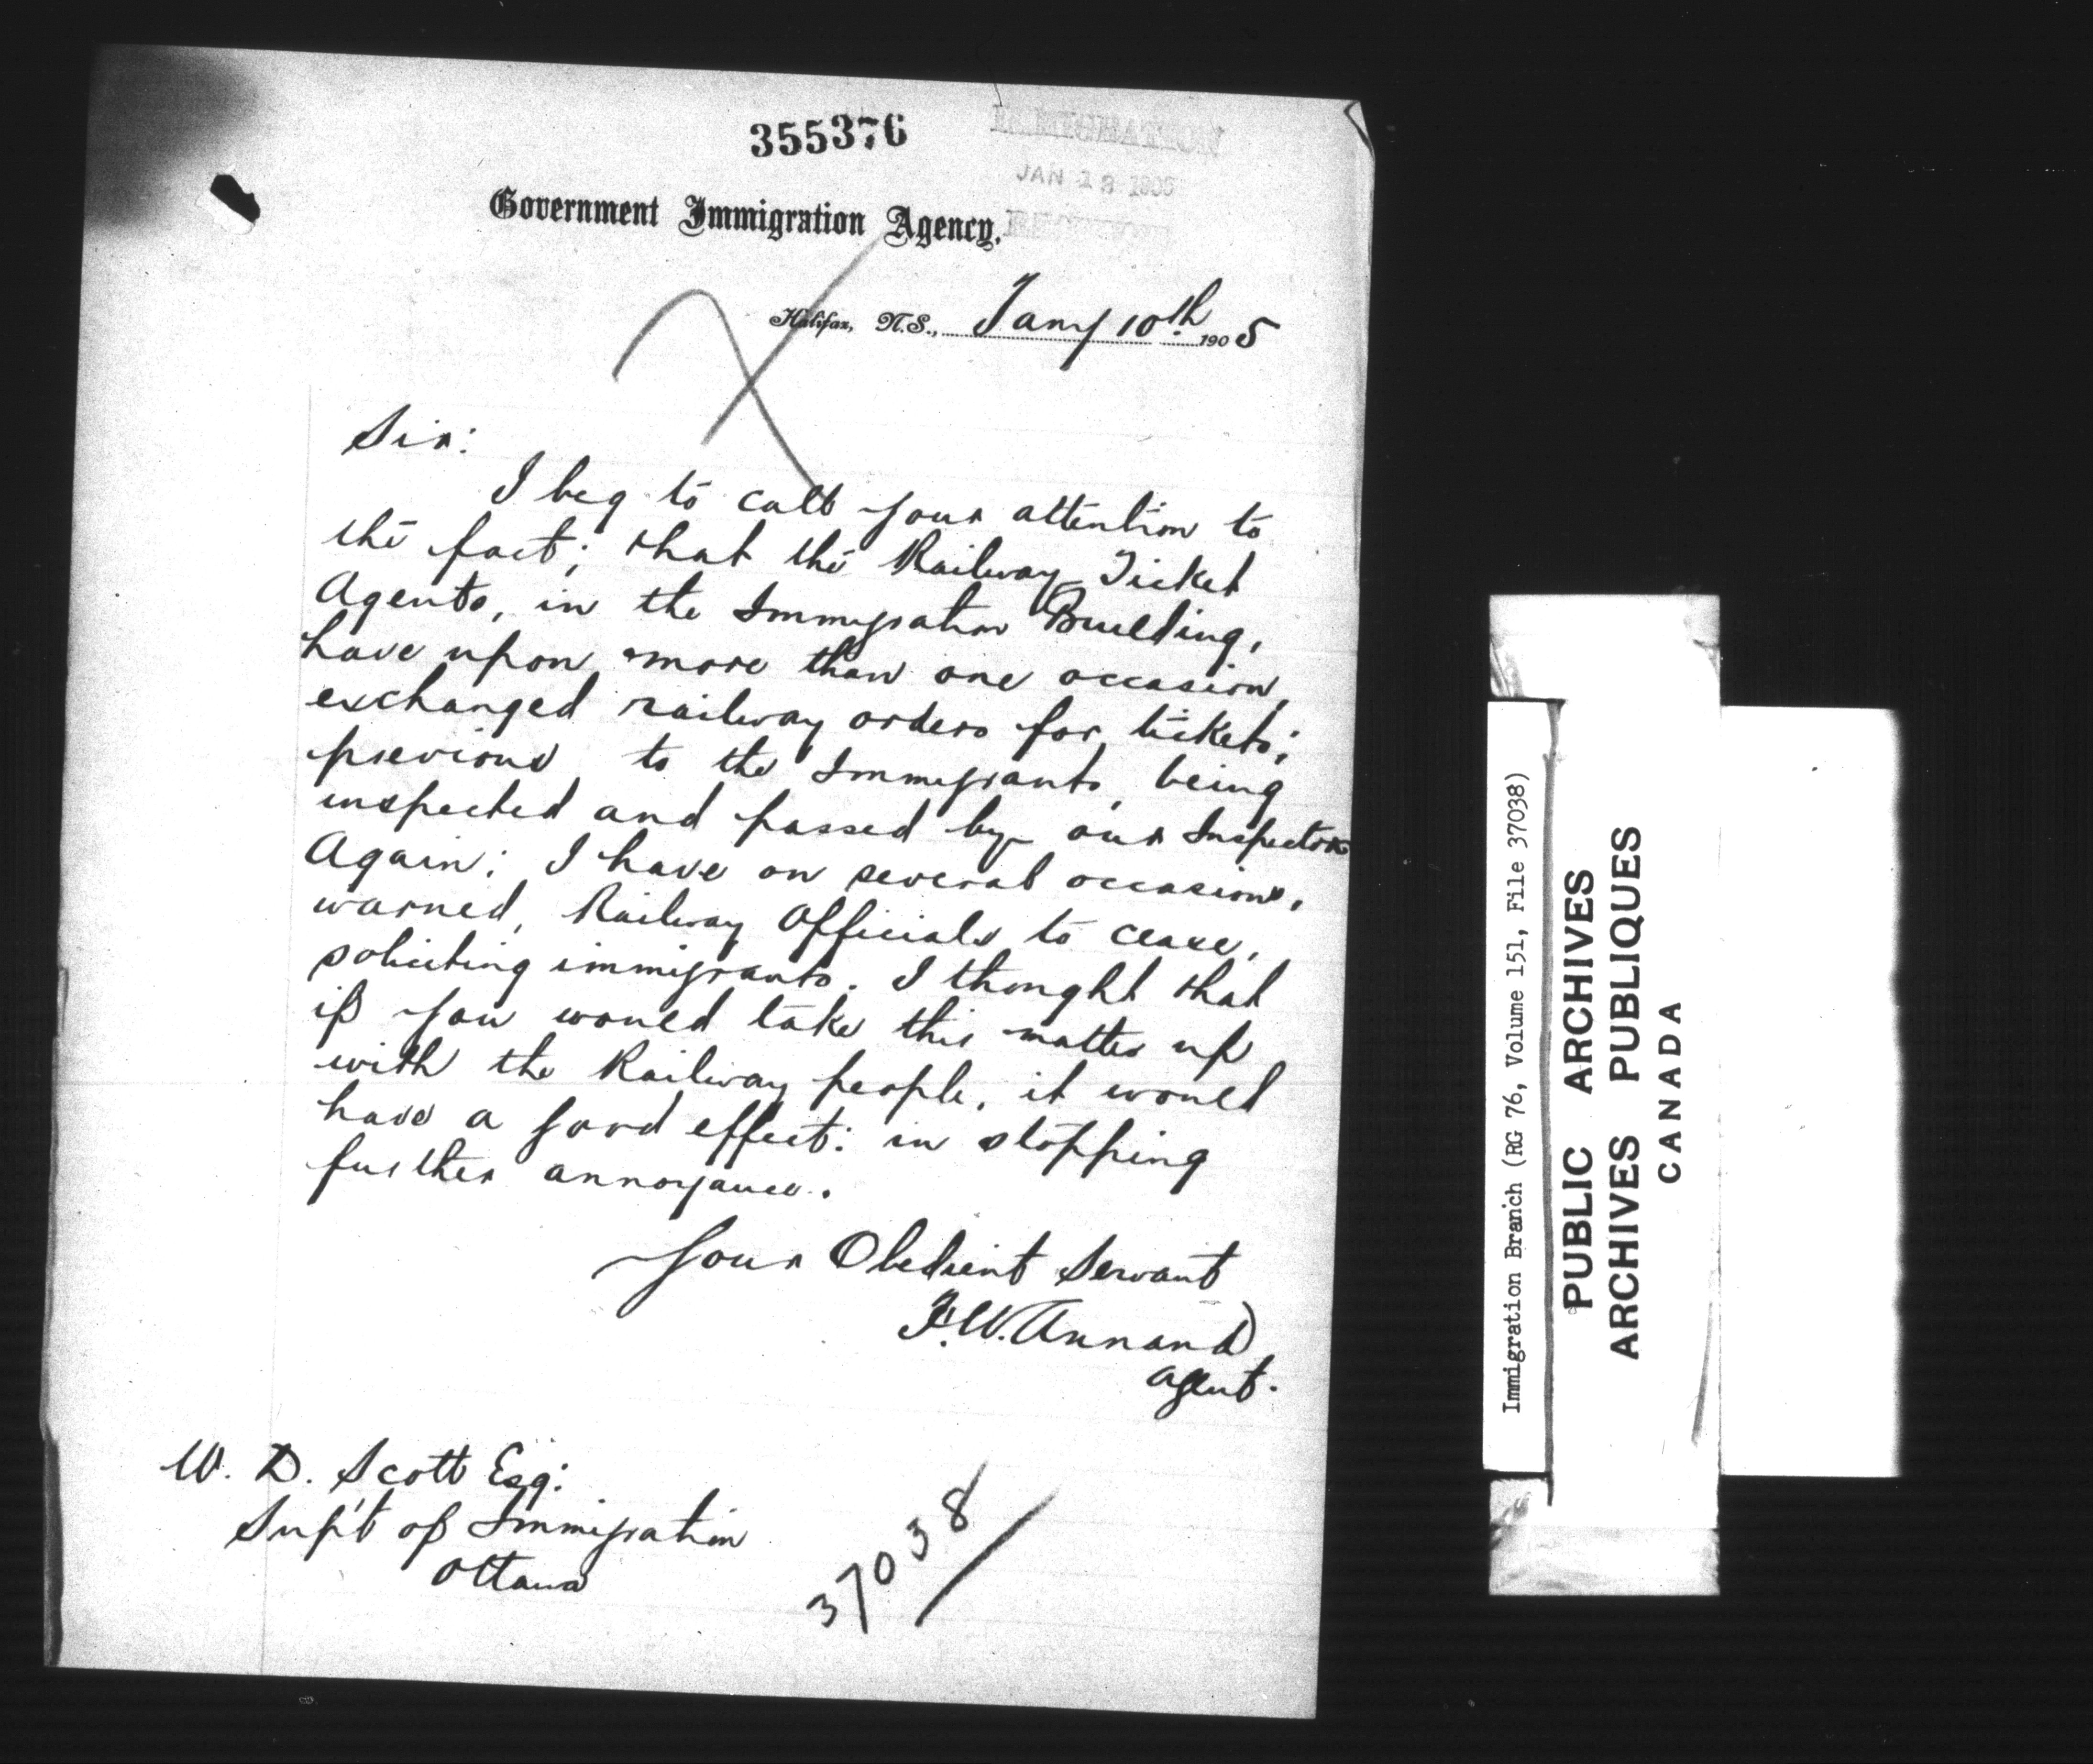 355376
IMMIGRATION
JAN 13 1905
RECEIVED
Government Immigration Agency.
Halifax, N.S., Jany 10th 1905
Sir:
I beg to call your attention to
the fact; that the Railway Ticket
Agents, in the Immigration Building,
have upon more than one occasion,
exchanged railway orders for tickets;
previous to the Immigrants, being
inspected and passed by our Inspectors
Again; I have on several occasions,
warned, Railway Officials to cease,
soliciting immigrants. I thought that
if you would take this matter up
with the Railway people, it would
have a good effect: in stopping
further annoyance.
Your Obedient Servant
F.W. Annand
Agent.
W. D. Scott Esq:
Sup't of Immigration
Ottawa
37038
Immigration Branch (RG 76, Volume 151, File 37038)
PUBLIC ARCHIVES
ARCHIVES PUBLIQUES
CANADA